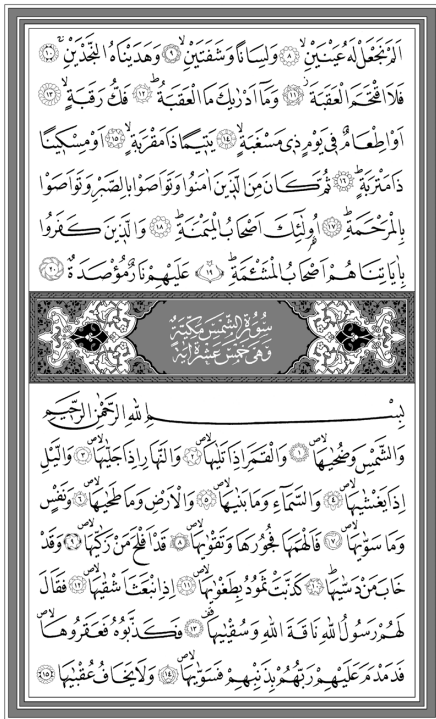 اَلَمْ نَجْعَلْ لَهُ عَيْنَيْنِۙ ﴿٨﴾ وَلِسَانًا وَشَفَتَيْنِۙ ﴿٩﴾ وَهَدَيْنَاهُ النَّجْدَيْنِۚ ﴿١٠﴾
فَلَا اقْتَحَمَ الْعَقَبَةَۘ ﴿١١﴾ وَمَٓا اَدْرٰيكَ مَا الْعَقَبَةُۜ ﴿١٢﴾ فَكُّ رَقَبَةٍۙ ﴿١٣﴾
اَوْ اِطْعَامٌ فٖي يَوْمٍ ذٖي مَسْغَبَةٍۙ ﴿١٤﴾ يَتٖيمًا ذَا مَقْرَبَةٍۙ ﴿١٥﴾ اَوْ مِسْكٖينًا
ذَا مَتْرَبَةٍۜ ﴿١٦﴾ ثُمَّ كَانَ مِنَ الَّذٖينَ اٰمَنُوا وَتَوَاصَوْا بِالصَّبْرِ وَتَوَاصَوْا
بِالْمَرْحَمَةِۜ ﴿١٧﴾ اُو۬لٰٓئِكَ اَصْحَابُ الْمَيْمَنَةِۜ ﴿١٨﴾ وَالَّذٖينَ كَفَرُوا
بِاٰيَاتِنَا هُمْ اَصْحَابُ الْمَشْـَٔمَةِۜ ﴿١٩﴾ عَلَيْهِمْ نَارٌ مُؤْصَدَةٌ ﴿٢٠﴾
سُورَةُ الشَّمْسِ مَكِّيَّةٌ
وَهِيَ خَمْسَ عَشْرَةَ اٰيَةً
بِسْمِ اللهِ الرَّحْمٰنِ الرَّحٖيمِ
وَالشَّمْسِ وَضُحٰيهَاۙۖ ﴿١﴾ وَالْقَمَرِ اِذَا تَلٰيهَاۙۖ ﴿٢﴾ وَالنَّهَارِ اِذَا جَلّٰيهَاۙۖ ﴿٣﴾ وَالَّيْلِ
اِذَا يَغْشٰيهَاۙۖ ﴿٤﴾ وَالسَّمَٓاءِ وَمَا بَنٰيهَاۙۖ ﴿٥﴾ وَالْاَرْضِ وَمَا طَحٰيهَاۙۖ ﴿٦﴾ وَنَفْسٍ
وَمَا سَوّٰيهَاۙۖ ﴿٧﴾ فَاَلْهَمَهَا فُجُورَهَا وَتَقْوٰيهَاۙۖ ﴿٨﴾ قَدْ اَفْلَحَ مَنْ زَكّٰيهَاۙۖ ﴿٩﴾ وَقَدْ
خَابَ مَنْ دَسّٰيهَاۜ ﴿١٠﴾ كَذَّبَتْ ثَمُودُ بِطَغْوٰيهَاۙۖ ﴿١١﴾ اِذِ انْبَعَثَ اَشْقٰيهَاۙۖ ﴿١٢﴾ فَقَالَ
لَهُمْ رَسُولُ اللهِ نَاقَةَ اللهِ وَسُقْيٰيهَاࣕ ﴿١٣﴾ فَكَذَّبُوهُ فَعَقَرُوهَاۙۖ
فَدَمْدَمَ عَلَيْهِمْ رَبُّهُمْ بِذَنْبِهِمْ فَسَوّٰيهَاۙۖ ﴿١٤﴾ وَلَا يَخَافُ عُقْبٰيهَا ﴿١٥﴾